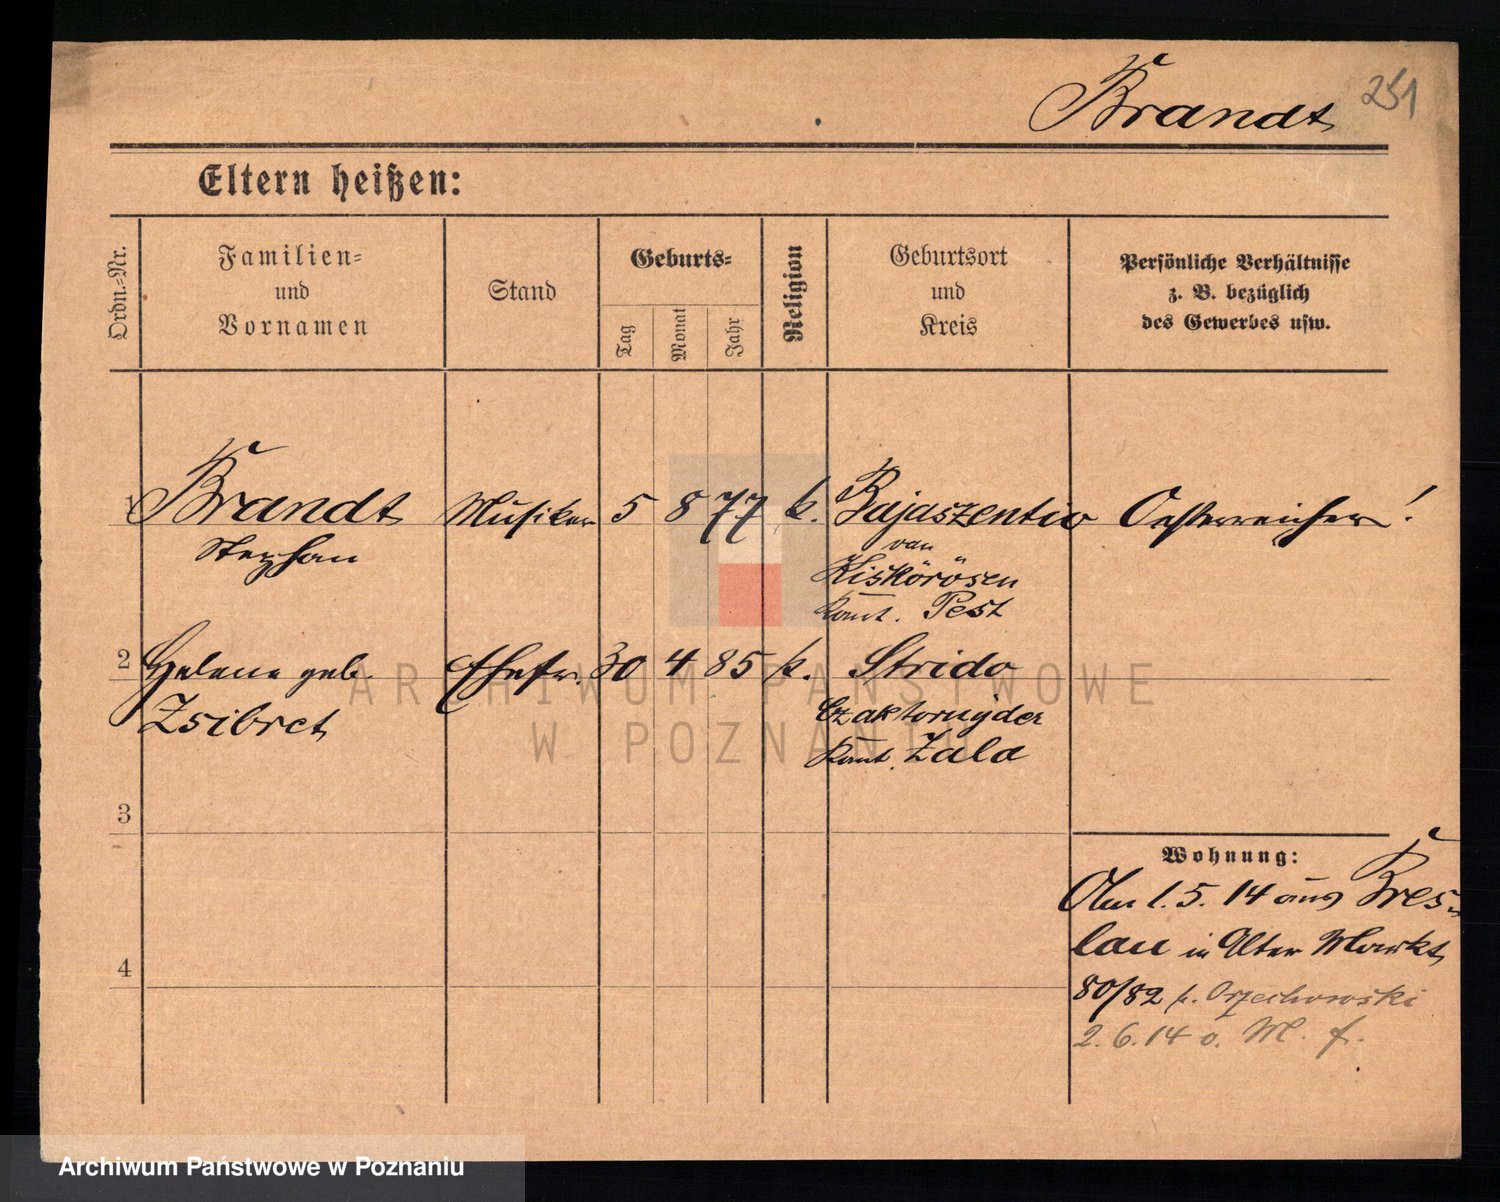 Brandt
251
Eltern heißen:
Ordn.-Nr.
Familien-
und
Vornamen
Stand
Geburts-
Tag
Monat
Jahr
Religion
Geburtsort
und
Kreis
Persönliche Verhältnisse
z. B. bezüglich
des Gewerbes usw.
1 Brandt Musiker 5 8 77 k. Bajaszentiv Oesterreicher!
Stephan
Kiskörösen
Komt. Pest
2 Helene geb. Ehefr. 30 4 85 k. Strido
Zsibret
Czaktornyder
Komt. Zala
3
4
Wohnung:
Am 1. 5. 14 aus Bres-
lau in Alter Markt
80/82 b. Orzechowski
2. 6. 14 o. M. f.
ARCHIWUM PAŃSTWOWE
W POZNANIU
Archiwum Państwowe w Poznaniu